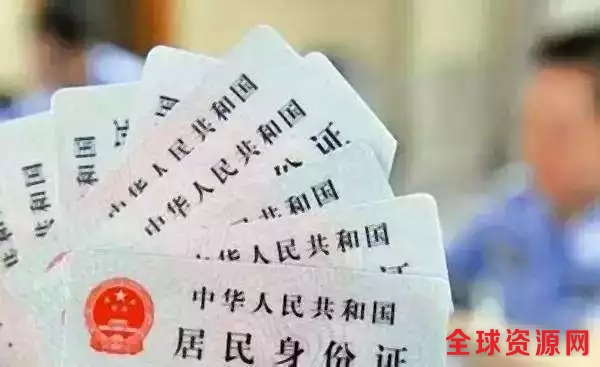 和国
国
中华人民共和国
中华人民共和国
证
和国
人民共和国
中华人民共和国
居民身份证
全球资源网